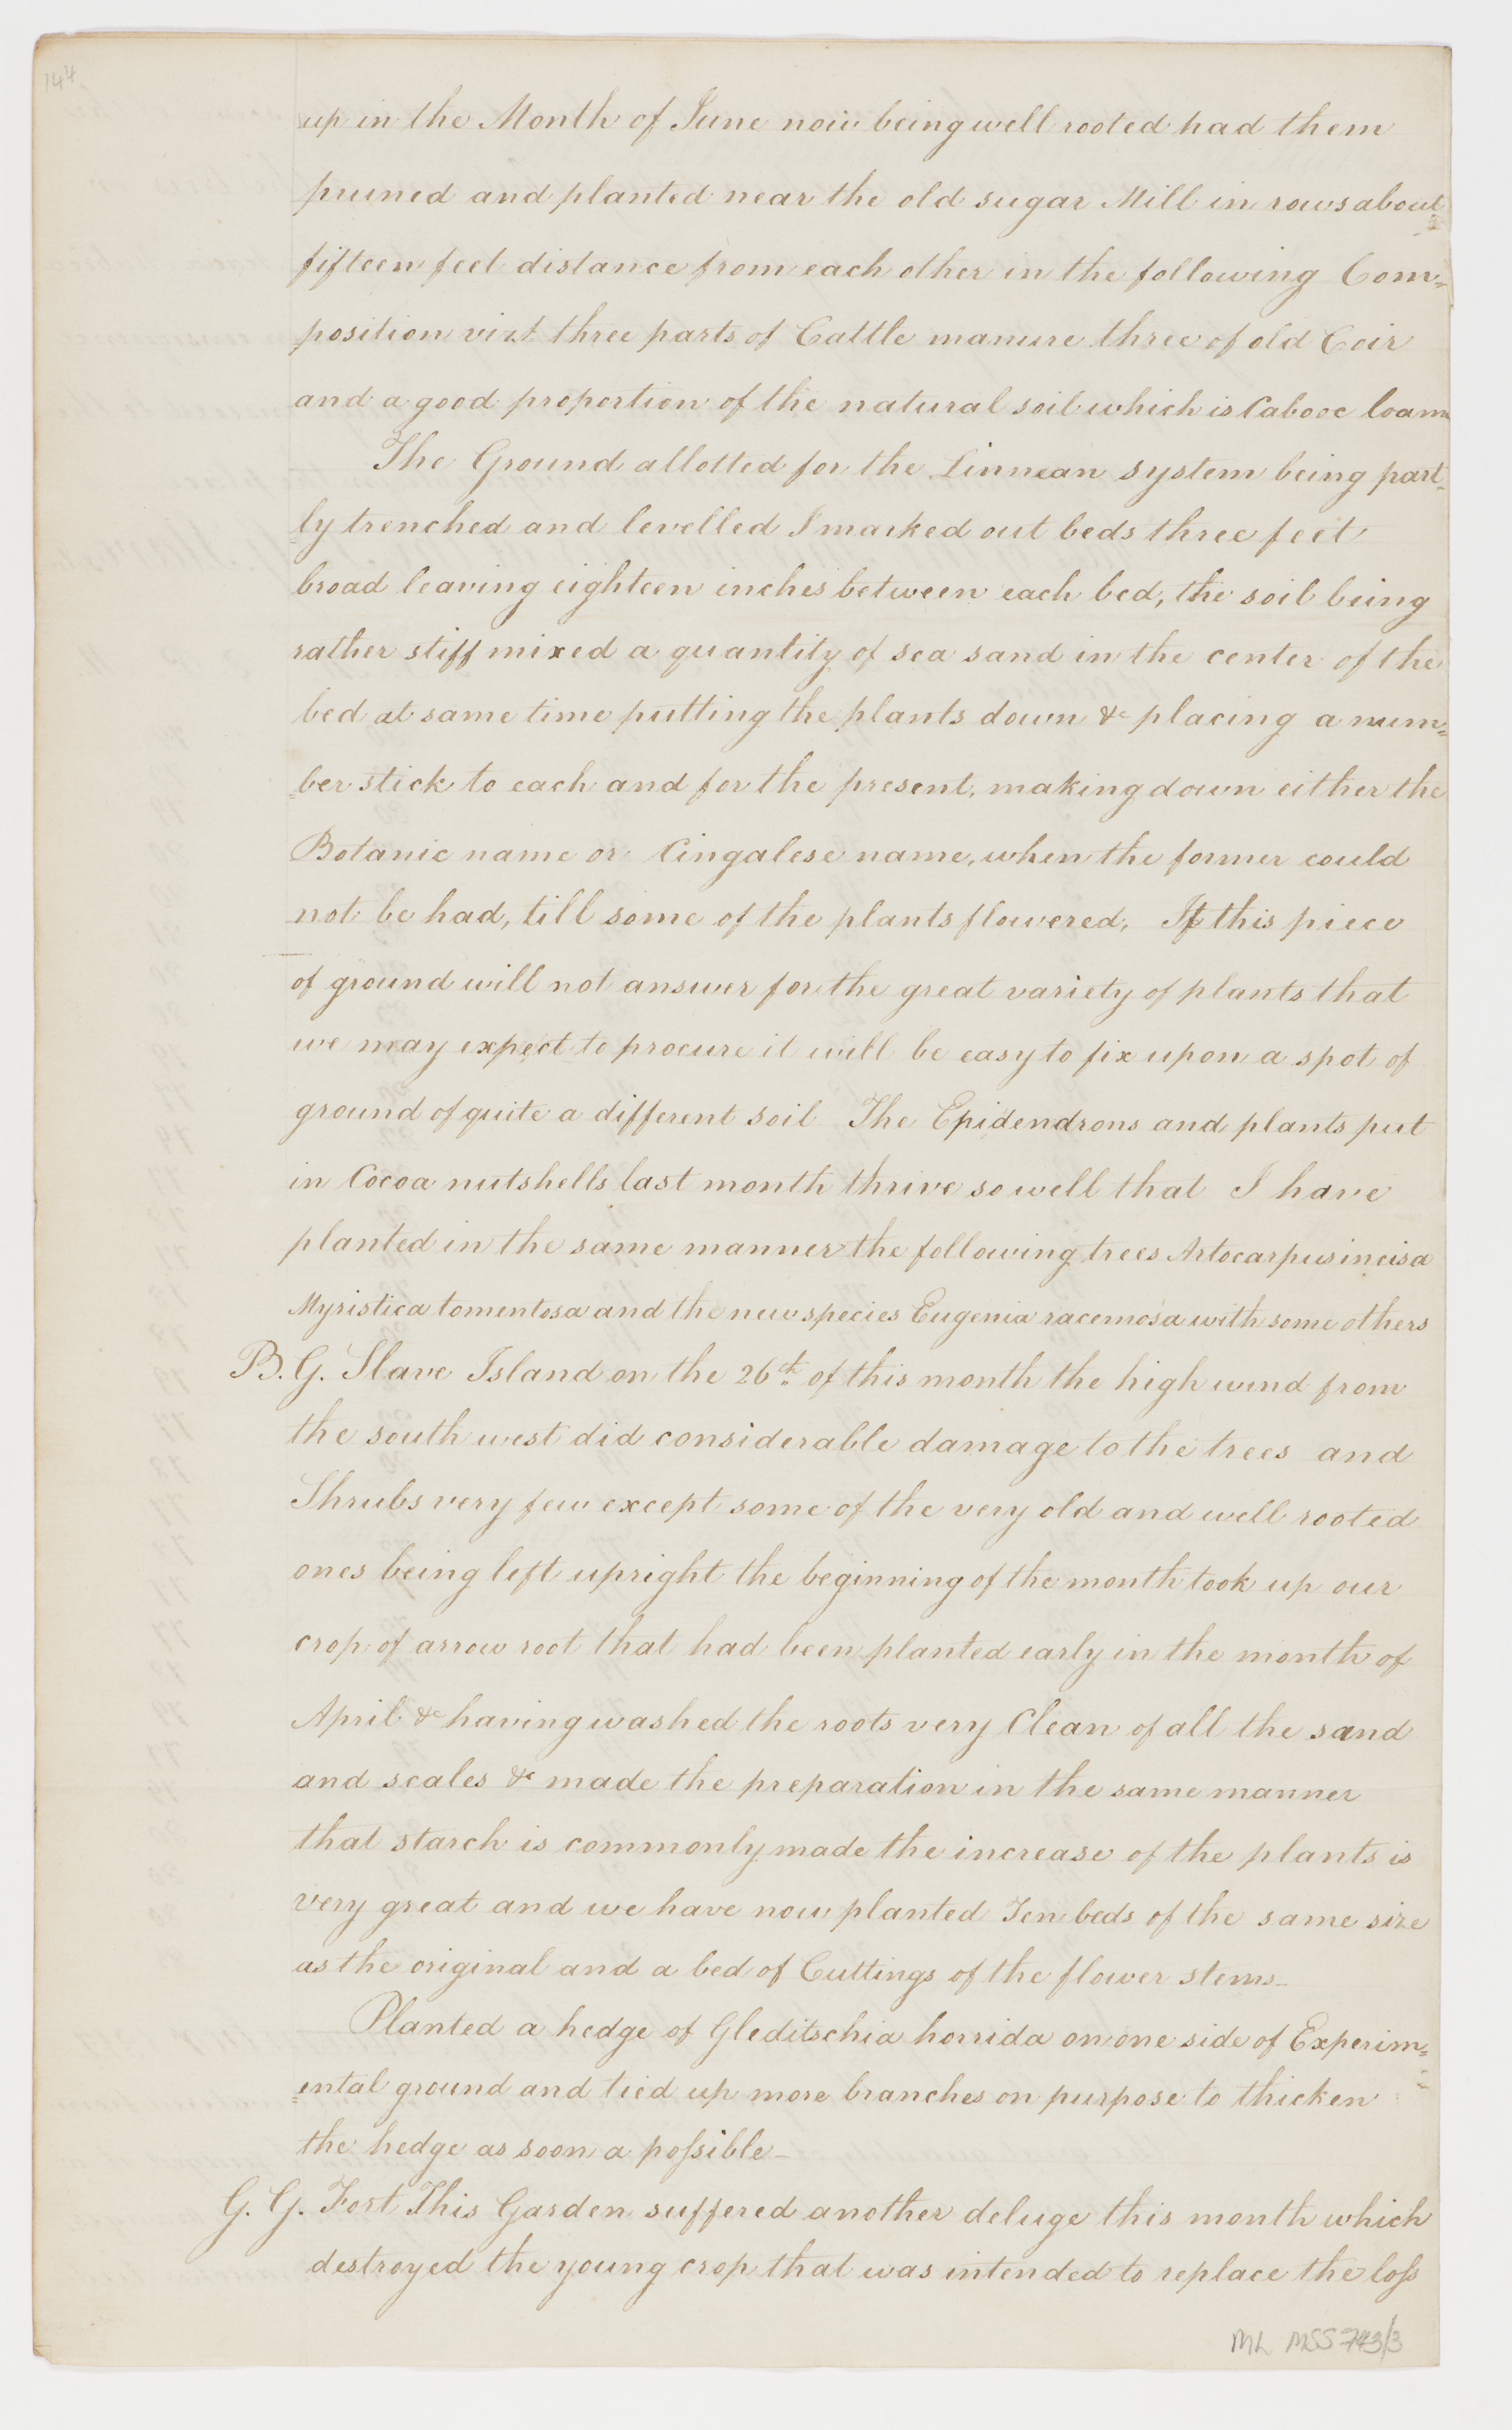 144
up in the Month of June now being well rooted had them
pruned and planted near the old sugar Mill in rows about
fifteen feet distance from each other in the following Com=
position vizt. three parts of Cattle manure three of old Coir
and a good proportion of the natural soil which is Cabooc loam
The Ground allotted for the Linnean system being part=
ly trenched and levelled I marked out beds three feet
broad leaving eighteen inches between each bed, the soil being
rather stiff mixed a quantity of sea sand in the center of the
bed at same time putting the plants down & placing a num=
=ber stick to each and for the present, making down either the
Botanic name or Cingalese name, when the former could
not be had, till some of the plants flowered, If this piece
of ground will not answer for the great variety of plants that
we may expect to procure it will be easy to fix upon a spot of
ground of quite a different soil The Epidendrons and plants put
in Cocoa nutshells last month thrive so well that I have
planted in the same manner the following trees Artocarpus incisa
Myristica tomentosa and the new species Eugenia racemosa with some others
B. G. Slave Island on the 26th. of this month the high wind from
the south west did considerable damage to the trees and
Shrubs very few except some of the very old and well rooted
ones being left upright the beginning of the month took up our
crop of arrow root that had been planted early in the month of
April & having washed the roots very Clean of all the sand
and scales & made the preparation in the same manner
that starch is commonly made the increase of the plants is
very great and we have now planted Ten beds of the same size
as the original and a bed of Cuttings of the flower stems_
Planted a hedge of Gleditschia horrida on one side of Experim=
=ental ground and tied up more branches on purpose to thicken
the hedge as soon a poſsible_
G. G. Fort This Garden suffered another deluge this month which
destroyed the young crop that was intended to replace the loſs
ML MSS 743/3